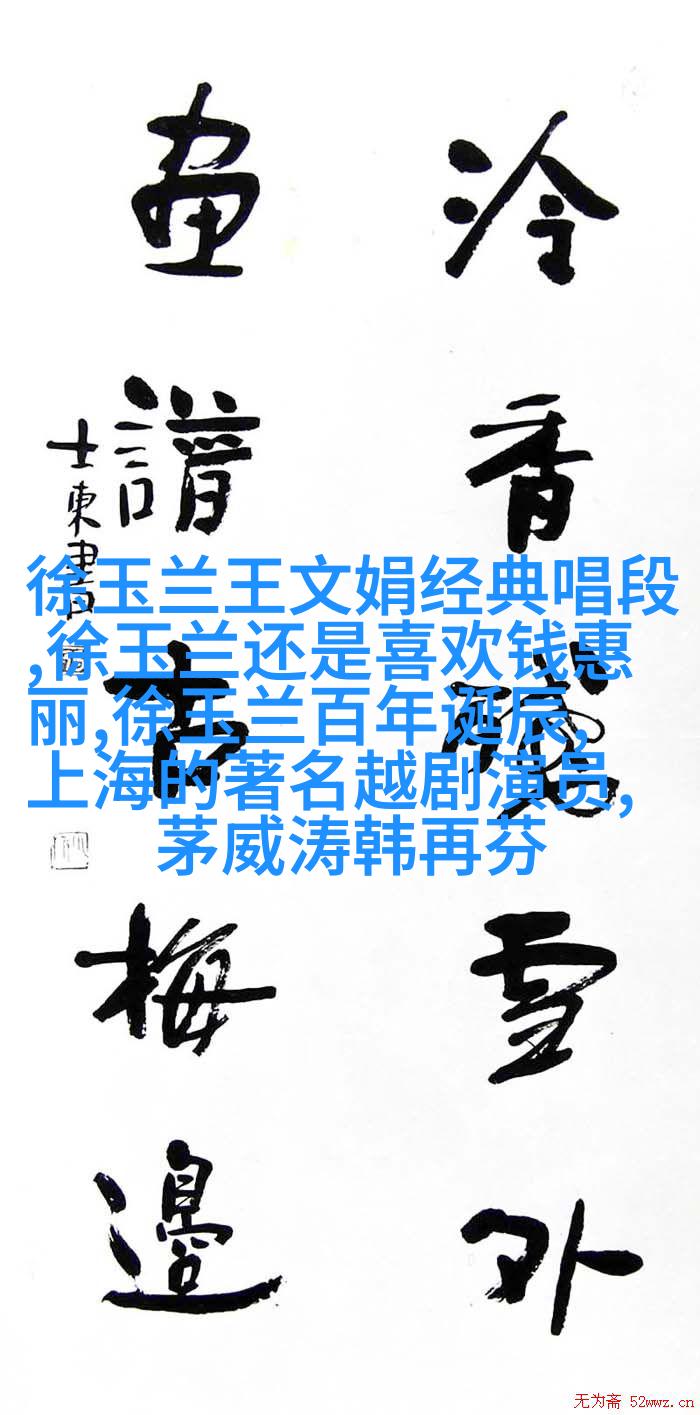 冷香雪外
畫譜古梅邊
士東書
徐玉兰王文娟经典唱段
,徐玉兰还是喜欢钱惠
丽,徐玉兰百年诞辰,
上海的著名越剧演员,
茅威涛韩再芬
无为斋 52wwz.cn